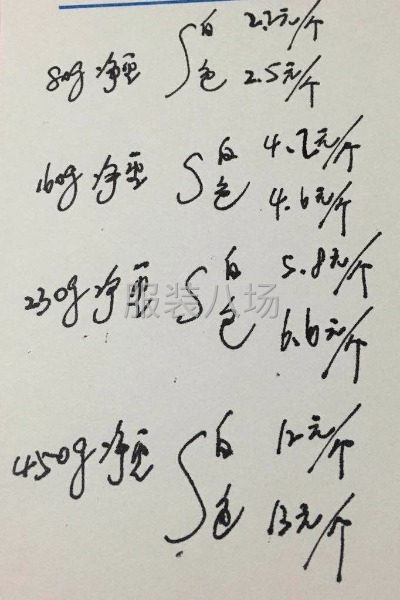 白 2.2元/个
80g 净重
色 2.5元/个
白 4.2元/个
160g 净重
色 4.6元/个
白 5.8元/个
230g 净重
色 6.6元/个
服装八场
白 12元/个
450g 净重
色 13元/个